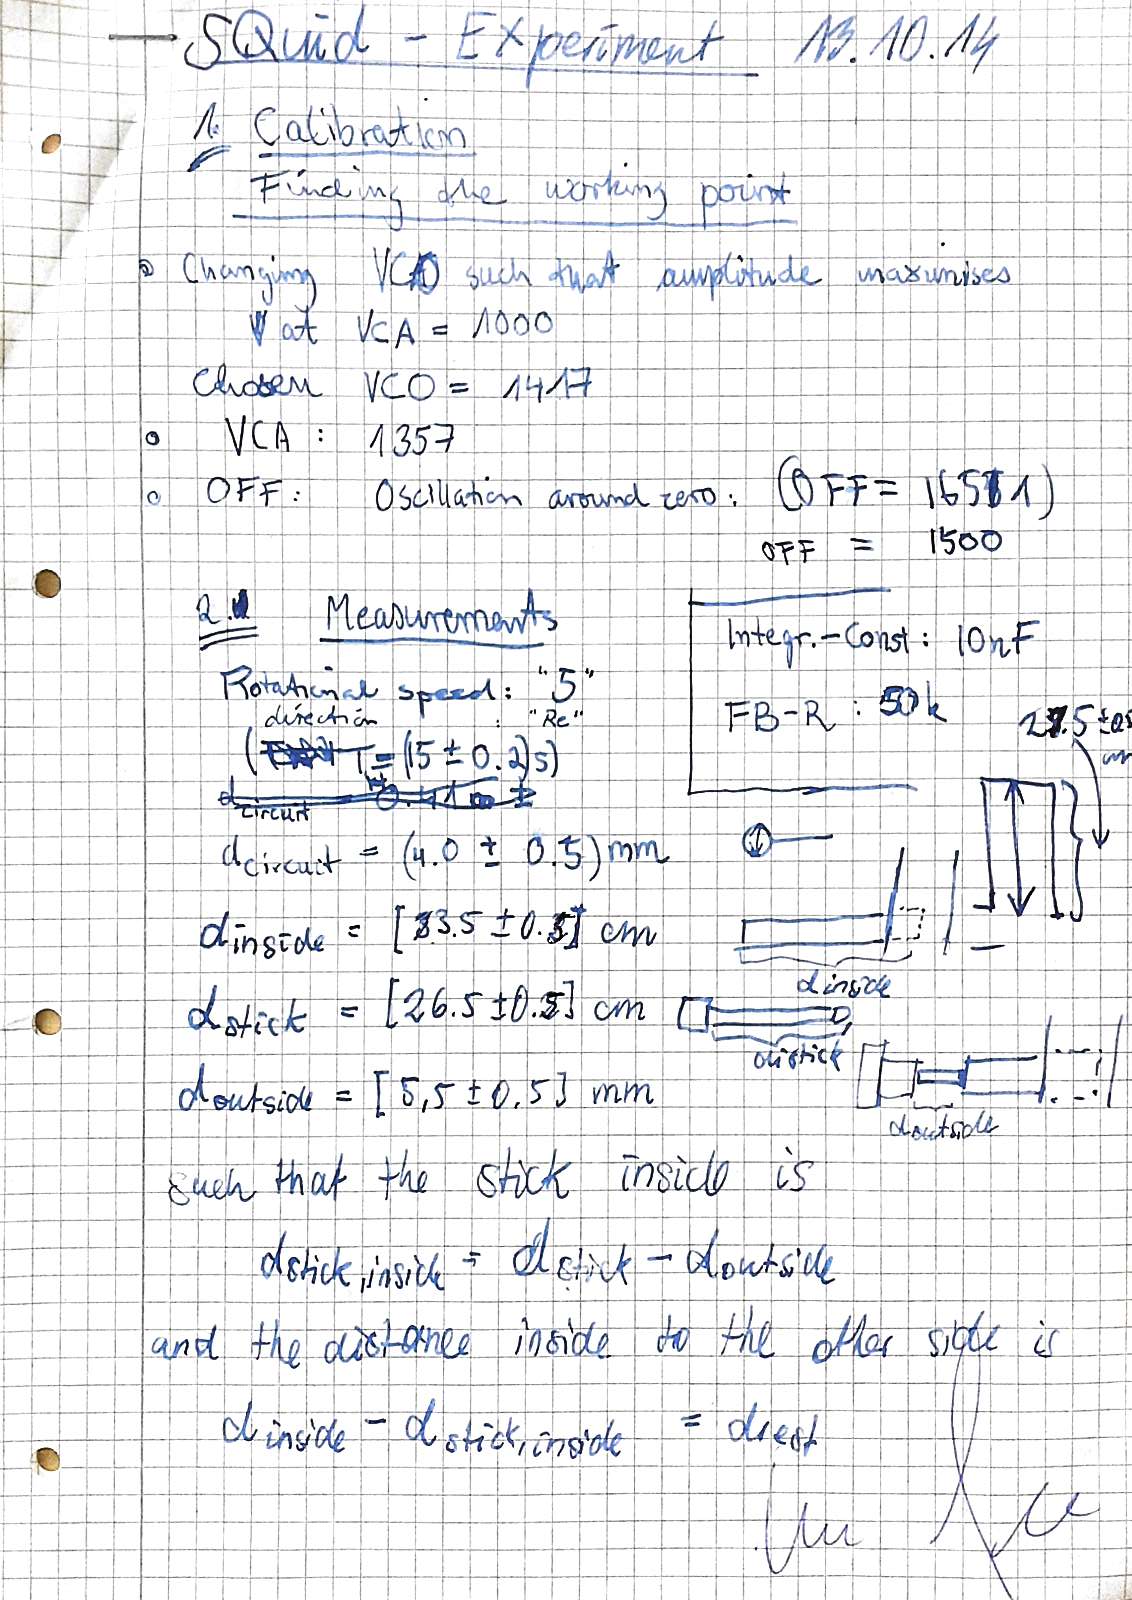 SQuid - Experiment 13.10.14
1. Calibration
Finding the working point
Changing VCO such that amplitude maximises
at VCA = 1000
Chosen VCO = 1417
VCA : 1357
OFF : Oscillation around zero : (OFF = 1651)
OFF = 1500
2. Measurements
Integr.-Const : 10nF
Rotational speed : "5"
direction : "Re"
FB-R : 50k
(T = (15 ± 0.2)s)
dcircuit
dcircuit = (4.0 ± 0.5) mm
dinside = [33.5 ± 0.5] cm
dinside
dstick = [26.5 ± 0.5] cm
dstick
doutside = [5,5 ± 0.5] mm
doutside
such that the stick inside is
dstick,inside = dstick - doutside
and the distance inside to the other side is
dinside - dstick,inside = drest